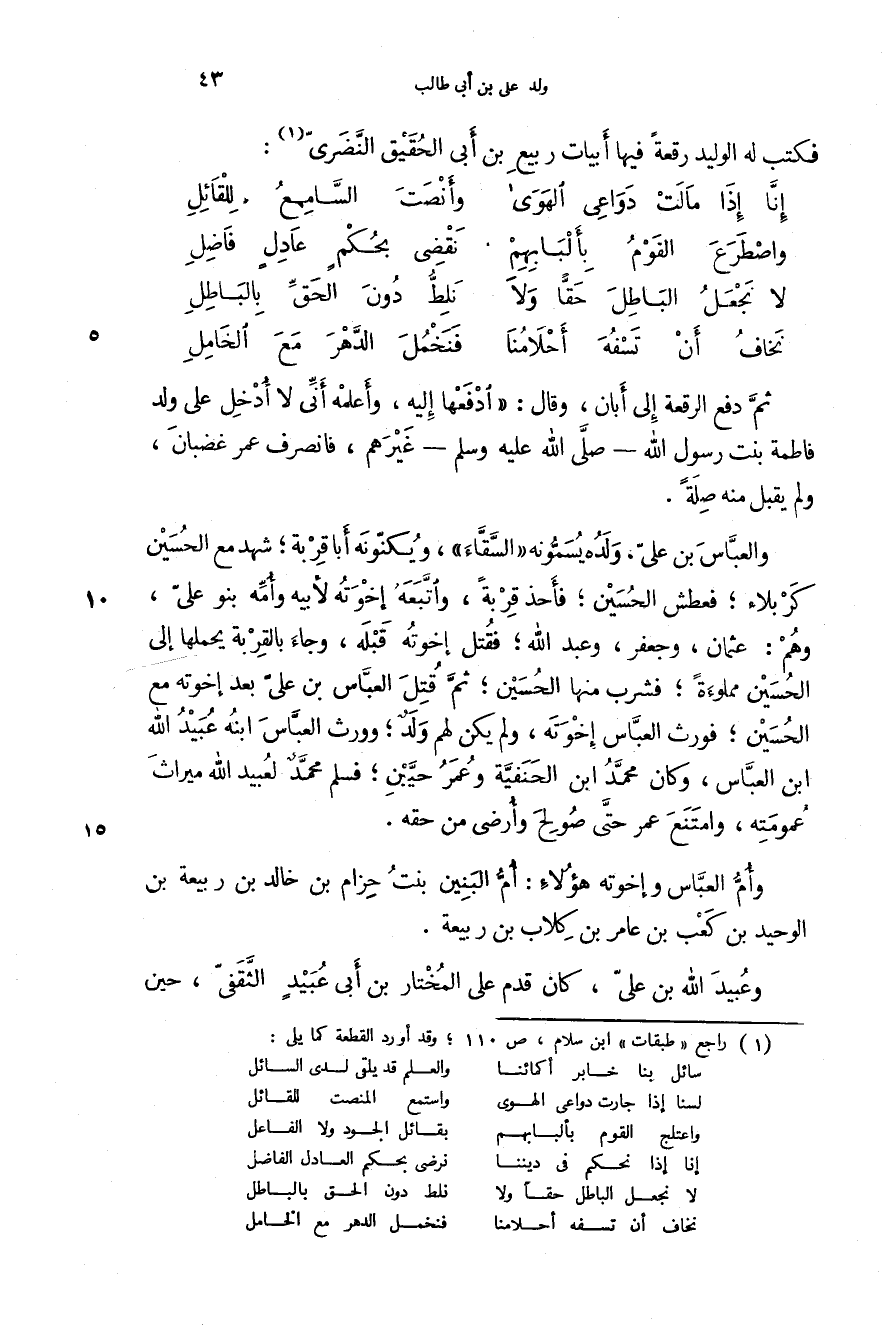 ولد على بن أبى طالب ٤٣
فكتب له الوليد رقعةً فيها أَبيات ربيعِ بن أَبى الحُقَيْق النَّضَرىّ(١) :
إِنَّا إِذَا مَالَتْ دَوَاعِى ٱلهَوَى وأَنْصَتَ السَّامِعُ لِلْقَائِلِ
واصْطَرَعَ القَوْمُ بِأَلْبَابِهِمْ نَقْضِى بحُكْمٍ عَادِلٍ فَاضِلِ
لا نَجْعَلُ البَاطِلَ حَقًّا وَلاَ نَلِطُّ دُونَ الحَقِّ بِالبَاطِلِ
٥ نَخَافُ أَنْ تَسْفَهَ أَحْلَامُنَا فَنَخْمُلَ الدَّهْرَ مَعَ ٱلخَامِلِ
ثمَّ دفع الرقعة إلى أَبان ، وقال : « ٱدْفَعْها إليه ، وأَعلمْه أَنِّى لا أُدْخِل على ولد
فاطمة بنت رسول الله — صلَّى الله عليه وسلم — غَيْرَهم ، فانصرف عمر غضبانَ ،
ولم يقبل منه صِلَةً .
والعبَّاسَ بن علىّ، وَلَدُه يُسَمُّونه «السَّقَّاءَ» ، ويُكنّونَه أَبا قِرْبة ؛ شهد مع الحسَيْن
١٠ كَرْبلاء ؛ فعطش الحُسَيْن ؛ فأَخذ قِرْبةً ، وٱتَّبَعَهُ إخْوَتُه لأَبيه وأُمِّه بنو علىّ ،
وهُمْ : عثمان ، وجعفر ، وعبد الله ؛ فقُتل إخوتُه قَبْلَه ، وجاءَ بالقِرْبة يحملها إلى
الحُسَيْن مملوءَةً ؛ فشرب منها الحُسَيْن ؛ ثمَّ قُتِلَ العبَّاس بن علىّ بعد إخوته مع
الحُسَيْن ؛ فورث العباس إخْوَتَه ، ولم يكن لهم وَلَدٌ ؛ وورث العبَّاسَ ابنُه عُبَيْدُ الله
ابن العبَّاس ، وكان محمَّدُ ابن الحَنَفيَّة وعُمَرُ حيَّيْنِ ؛ فسلم محمَّدٌ لعُبيد الله ميراثَ
١٥ عُمومَتِه ، وامتَنَعَ عمر حتَّى صُولِحَ وأُرضى من حقه .
وأُمُّ العبَّاس وإخوته هؤُلاءِ : أُمُّ البَنِين بنتُ حِزام بن خالد بن ربيعة بن
الوحيد بن كَعْب بن عامر بن كِلاب بن ربيعة .
وعُبيدَ الله بن علىّ ، كان قدم على المُخْتار بن أَبى عُبَيْدٍ الثَّقَفىّ ، حين
(١) راجع « طبقات» ابن سلام ، ص ١١٠ ؛ وقد أورد القطعة كما يلى :
سائل بنا خابر أكمائنا والعلم قد يلقى لدى السائل
لسنا إذا جارت دواعى الهوى واستمع المنصت للقائل
واعتلج القوم بألبابهم بقائل الجود ولا الفاعل
إنا إذا نحكم فى ديننا نرضى بحكم العادل الفاضل
لا نجعل الباطل حقاً ولا نلط دون الحق بالباطل
نخاف أن تسفه أحلامنا فنخمل الدهر مع الخامل